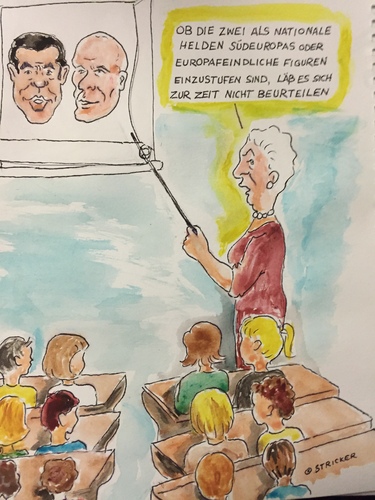 OB DIE ZWEI ALS NATIONALE
HELDEN SÜDEUROPAS ODER
EUROPAFEINDLICHE FIGUREN
EINZUSTUFEN SIND, LÄẞT ES SICH
ZUR ZEIT NICHT BEURTEILEN
@ STRICKER